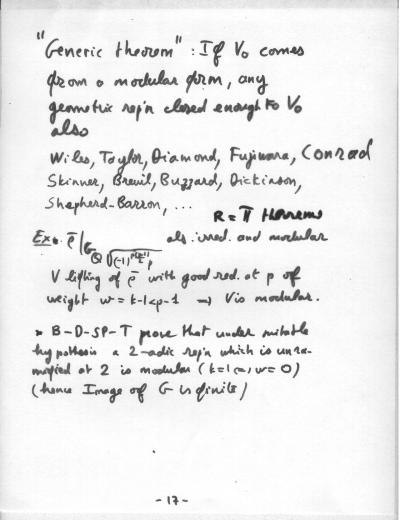 "Generic theorem" : If V₀ comes
from a modular form, any
geometric rep'n closed enough to V₀
also
Wiles, Taylor, Diamond, Fujiwara, Conrad
Skinner, Breuil, Buzzard, Dickinson,
Shepherd-Barron, ...
R = T theorems
Ex. ρ̄|G_Q(√((-1)^((p-1)/2) p)) abs. irred. and modular
V lifting of ρ̄ with good red. at p of
weight w = k-1 < p-1 → V is modular.
B-D-SP-T prove that under suitable
hypothesis a 2-adic rep'n which is unra-
mified at 2 is modular (k=1 ⇔ w=0)
(hence Image of G is finite)
- 17 -